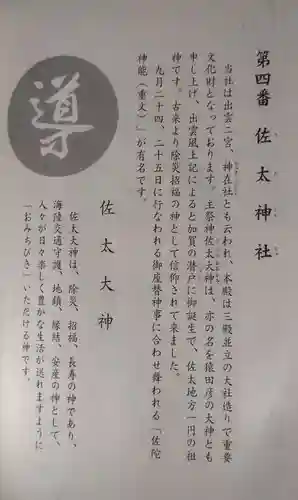 第四番 佐太神社
当社は出雲二宮、神在社とも云われ、本殿は三殿並立の大社造りで重要
文化財となっております。主祭神佐太大神は、亦の名を猿田彦の大神とも
申し上げ、出雲風土記によると加賀の潜戸に御誕生で、佐太地方一円の祖
神です。古来より除災招福の神として信仰されて来ました。
九月二十四、二十五日に行なわれる御座替神事に合わせ舞われる「佐陀
神能(重文)」が有名です。
佐太大神
佐太大神は、除災、招福、長寿の神であり、
海陸交通守護、地鎮、縁結、安産の神として、
人々が日々楽しく豊かな生活が送れますように
「おみちびき」いただける神です。
導